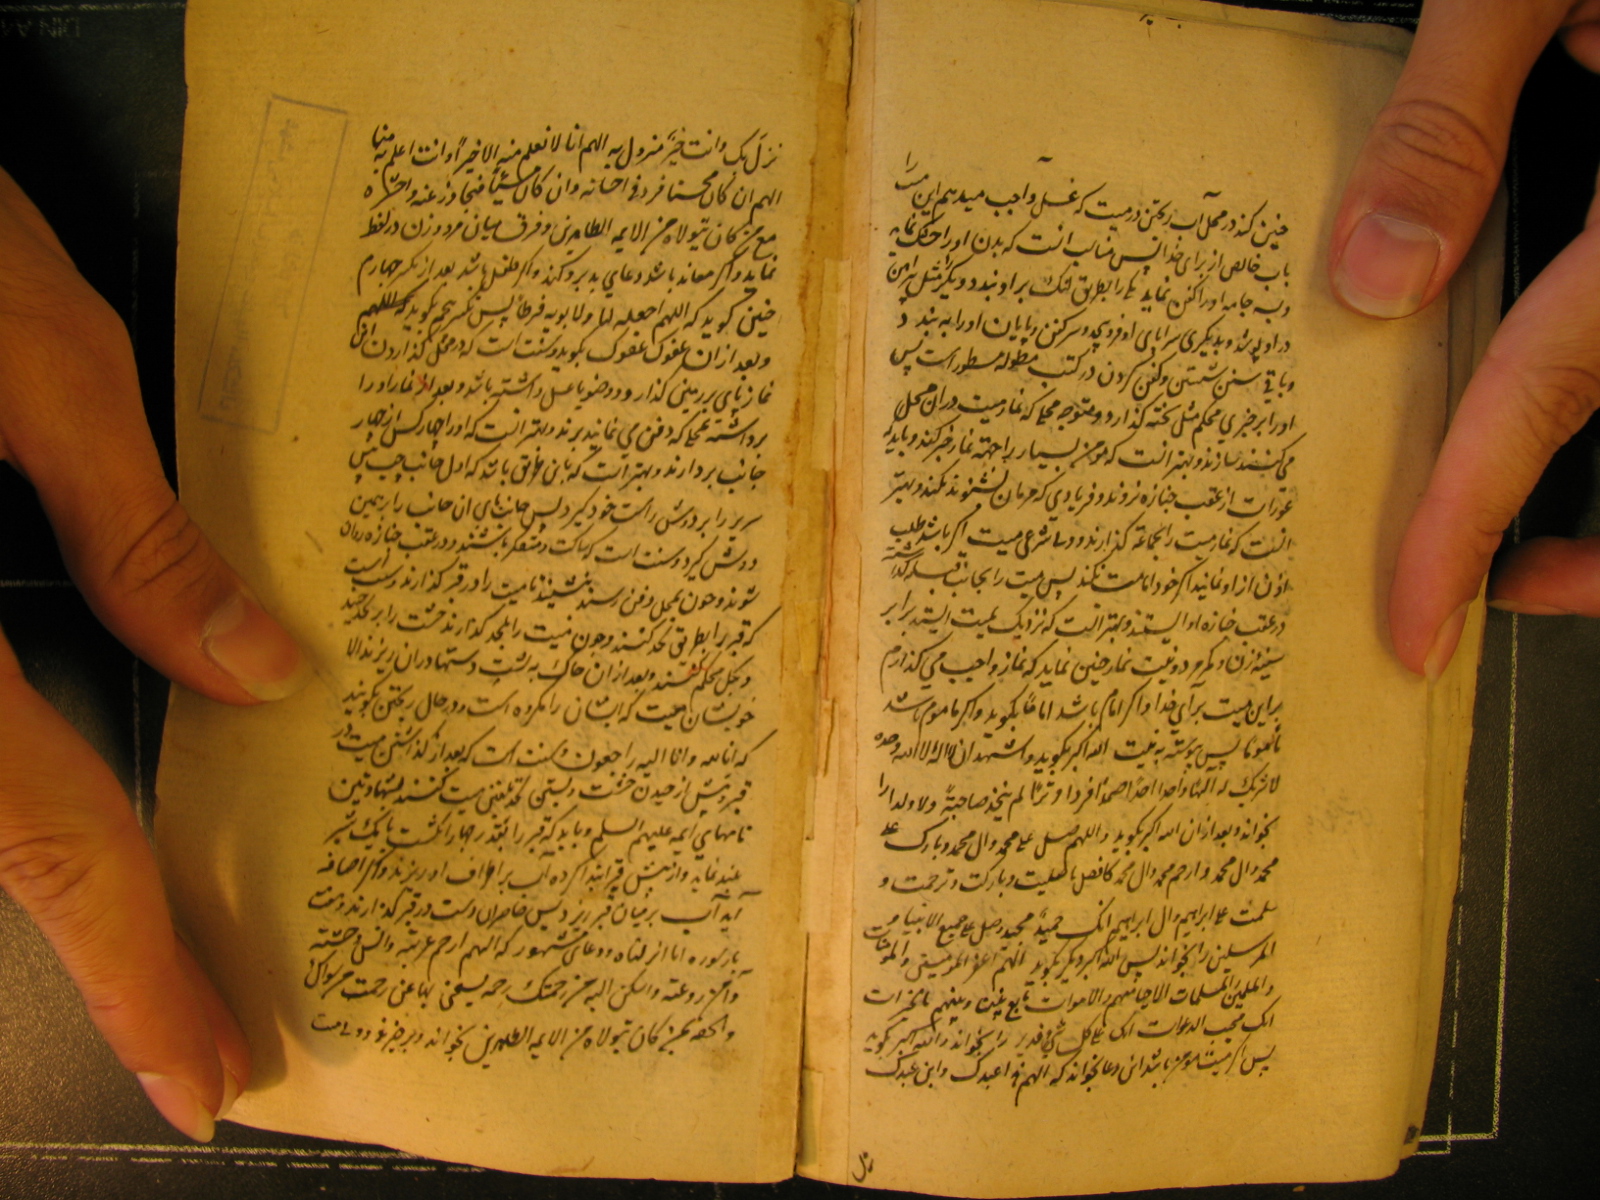 چنین کند در محل آب ریختن در میت که غسل واجب میدهم این میت را
باب خالص از برای خدا پس مناسب انست که بدن او را خشک نماید
و بسه جامه او را کفن نماید یکی را بطریق لنک بر او بندد و دیگر مثل پیراهن
در او پوشد و بدیگری سراپای او فرو پیچد و سر کفن و پایان او را به بندد
و باقی سنن شستن و کفن کردن در کتب مطوله مسطور است پس
او را بر چیزی محکم مثل تخته گذارد و متوجه محلی که نماز میت در ان محل
می کنند سازند و بهتر انست که مومن بسیار برا جهته نماز خبر کنند و باید که
عورات از عقب جنازه نروند و فریادی که مردمان نشنوند نکنند و بهتر
انست که نماز میت را بجماعة گذارند و ولی شرعی میت اگر باشد طلب
اذن از او نمایند اگر خود امامت نکند پس میت را بجانب قبله گذاشته
در عقب جنازه او ایستند و بهتر انست که نزدیک بمیت ایستد برابر
سینه زن و کمر مرد و نیت نماز چنین نماید که نماز واجب می گذارم
بر این میت برای خدا و اگر امام باشد اماما بگوید و اگر ماموم باشد
مأموما پس پیوسته به نیت الله اکبر بگوید و اشهد ان لا اله الا الله وحده
لا شریک له الها واحدا احدا صمدا فردا وترا لم یتخذ صاحبة ولا ولدا را
بخواند و بعد از ان الله اکبر بگوید و اللهم صل علی محمد وال محمد وبارک علی
محمد وال محمد وارحم محمد وال محمد کافضل ما صلیت وبارکت وترحمت و
سلمت علی ابراهیم وال ابراهیم انک حمید مجید وصل علی جمیع الانبیاء و
المرسلین را بخواند پس الله اکبر دیگر بگوید اللهم اغفر للمومنین والمومنات
والمسلمین والمسلمات الاحیاء منهم والاموات تابع بیننا وبینهم بالخیرات
انک مجیب الدعوات انک علی کل شی قدیر را بخواند و الله اکبر بگوید
پس اگر میت مومن باشد این دعا بخواند که اللهم هذا عبدک وابن عبدک
نزل
نزل بک وانت خیر منزول به اللهم انا لا نعلم منه الا خیرا وانت اعلم به منا
اللهم ان کان محسنا فزد فی احسانه وان کان مسیئا فتجاوز عنه واحشره
مع من کان یتولاه من الایمه الطاهرین و فرق میانی مرد و زن در لفظ
نماید و اگر معاند باشد دعای بد برو کند و اگر طفل باشد بعد از تکبیر چهارم
چنین گوید که اللهم اجعله لنا ولابویه فرطا پس تکبیر پنجم بگوید که اللهم
و بعد از ان عفوک عفوک بگوید و سنت است که در محل گذاردن این
نماز پای بر زمین گذارد و وضو یا غسل داشته باشد و بعد از نماز او را
برداشته بمحلی که دفن می نمایند برند و بهتر انست که او را چهار کس از چهار
جانب بردارند و بهتر انست که باین طریق باشد که اول جانب چپ پس
سریر را بر دوش راست خود گیرد پس جانبهای ان جانب را بر همین
دوش گیرد و سنت است که ساکت و متفکر باشند و در عقب جنازه روان
شوند و چون بمحل دفن رسند بنشینند تا میت را در قبر گذارند و سنت است
که قبر را بطریق لحد کنند و چون میت را بلحد گذارند خشت را بر لحد چینند
و بگل محکم کنند و بعد از ان خاک به پشت دستها در ان ریزند الا
خویشان میت که ایشان را مکروه است و در حال ریختن بگویند
که انا لله وانا الیه راجعون و سنت است که بعد از گذاشتن میت در
قبر و پیش از چیدن خشت و بستن لحد تلقین میت کنند بشهادتین
نامهای ایمه علیهم السلم و باید که قبر را بقدر چهار انگشت یا یک شبر
بلند نماید و از پیش قبر ابتدا کرده آب بر اطراف او ریزند و اگر اضافه
آید آب بر میان قبر ریزد پس حاضران دست در قبر گذارند و هفت
بار سوره انا انزلناه و دعای مشهور که اللهم ارحم غربته وانس وحشته
وآمن روعته واسکن الیه من رحمتک رحمة یستغنی بها عن رحمة من سواک
والحقه بمن کان یتولاه من الایمه الطاهرین بخواند و برخیزند و ولی میت